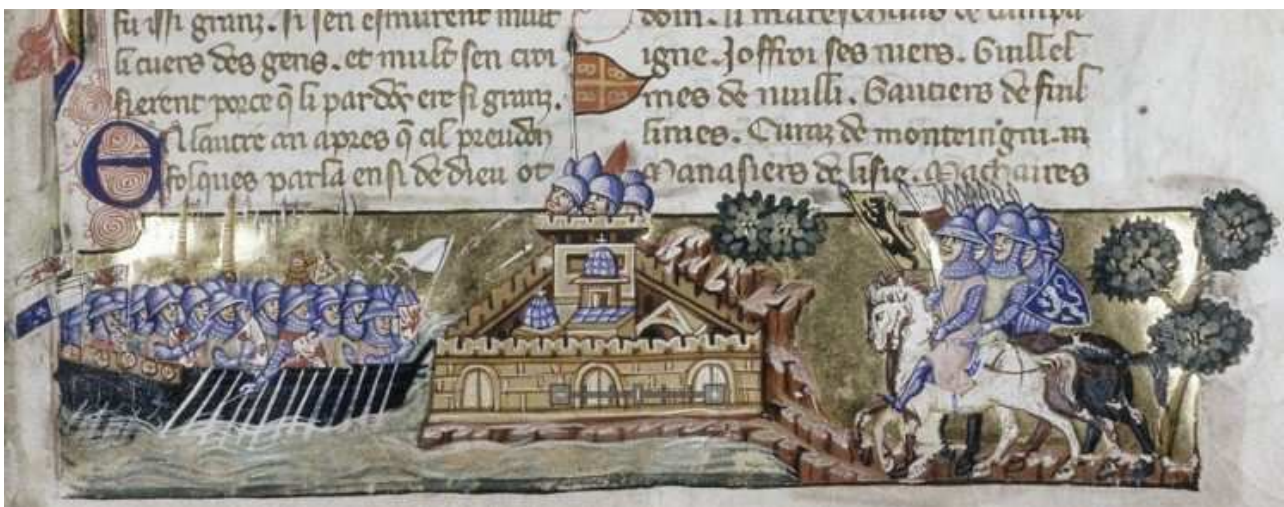 fu issi granz. si sen esmurent mult
li cuers des gens. et mult sen croi
sierent porce q̃ li pardõs ere si granz.
EN lautre an apres q̃ cil preudõ
folques parla ensi de dieu ot
doin. li mareschaus de campa
igne. Joffroi ses niers. Guillel
mes de nuilli. Gautiers de fuil
lines. Euraz de monteingni. m
Manasiers de lisle. Machaires